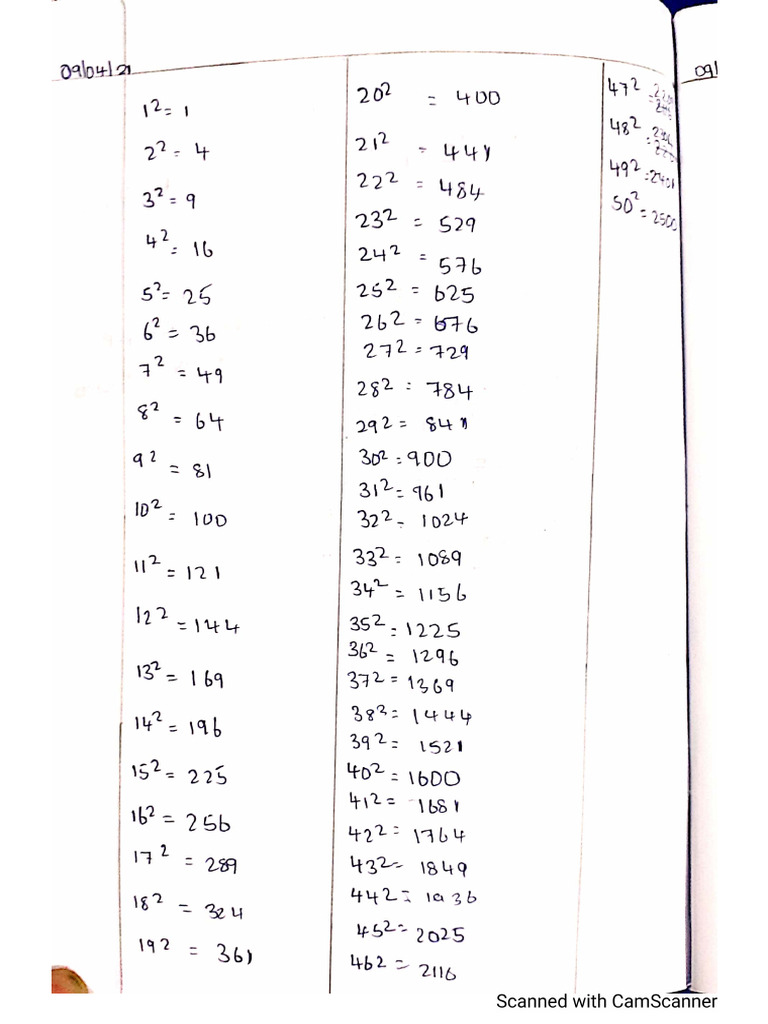 09/04/21
1² = 1
2² = 4
3² = 9
4² = 16
5² = 25
6² = 36
7² = 49
8² = 64
9² = 81
10² = 100
11² = 121
12² = 144
13² = 169
14² = 196
15² = 225
16² = 256
17² = 289
18² = 324
19² = 361
20² = 400
21² = 441
22² = 484
23² = 529
24² = 576
25² = 625
26² = 676
27² = 729
28² = 784
29² = 841
30² = 900
31² = 961
32² = 1024
33² = 1089
34² = 1156
35² = 1225
36² = 1296
37² = 1369
38² = 1444
39² = 1521
40² = 1600
41² = 1681
42² = 1764
43² = 1849
44² = 1936
45² = 2025
46² = 2116
47² =
48² =
49² = 2401
50² = 2500
09/
Scanned with CamScanner